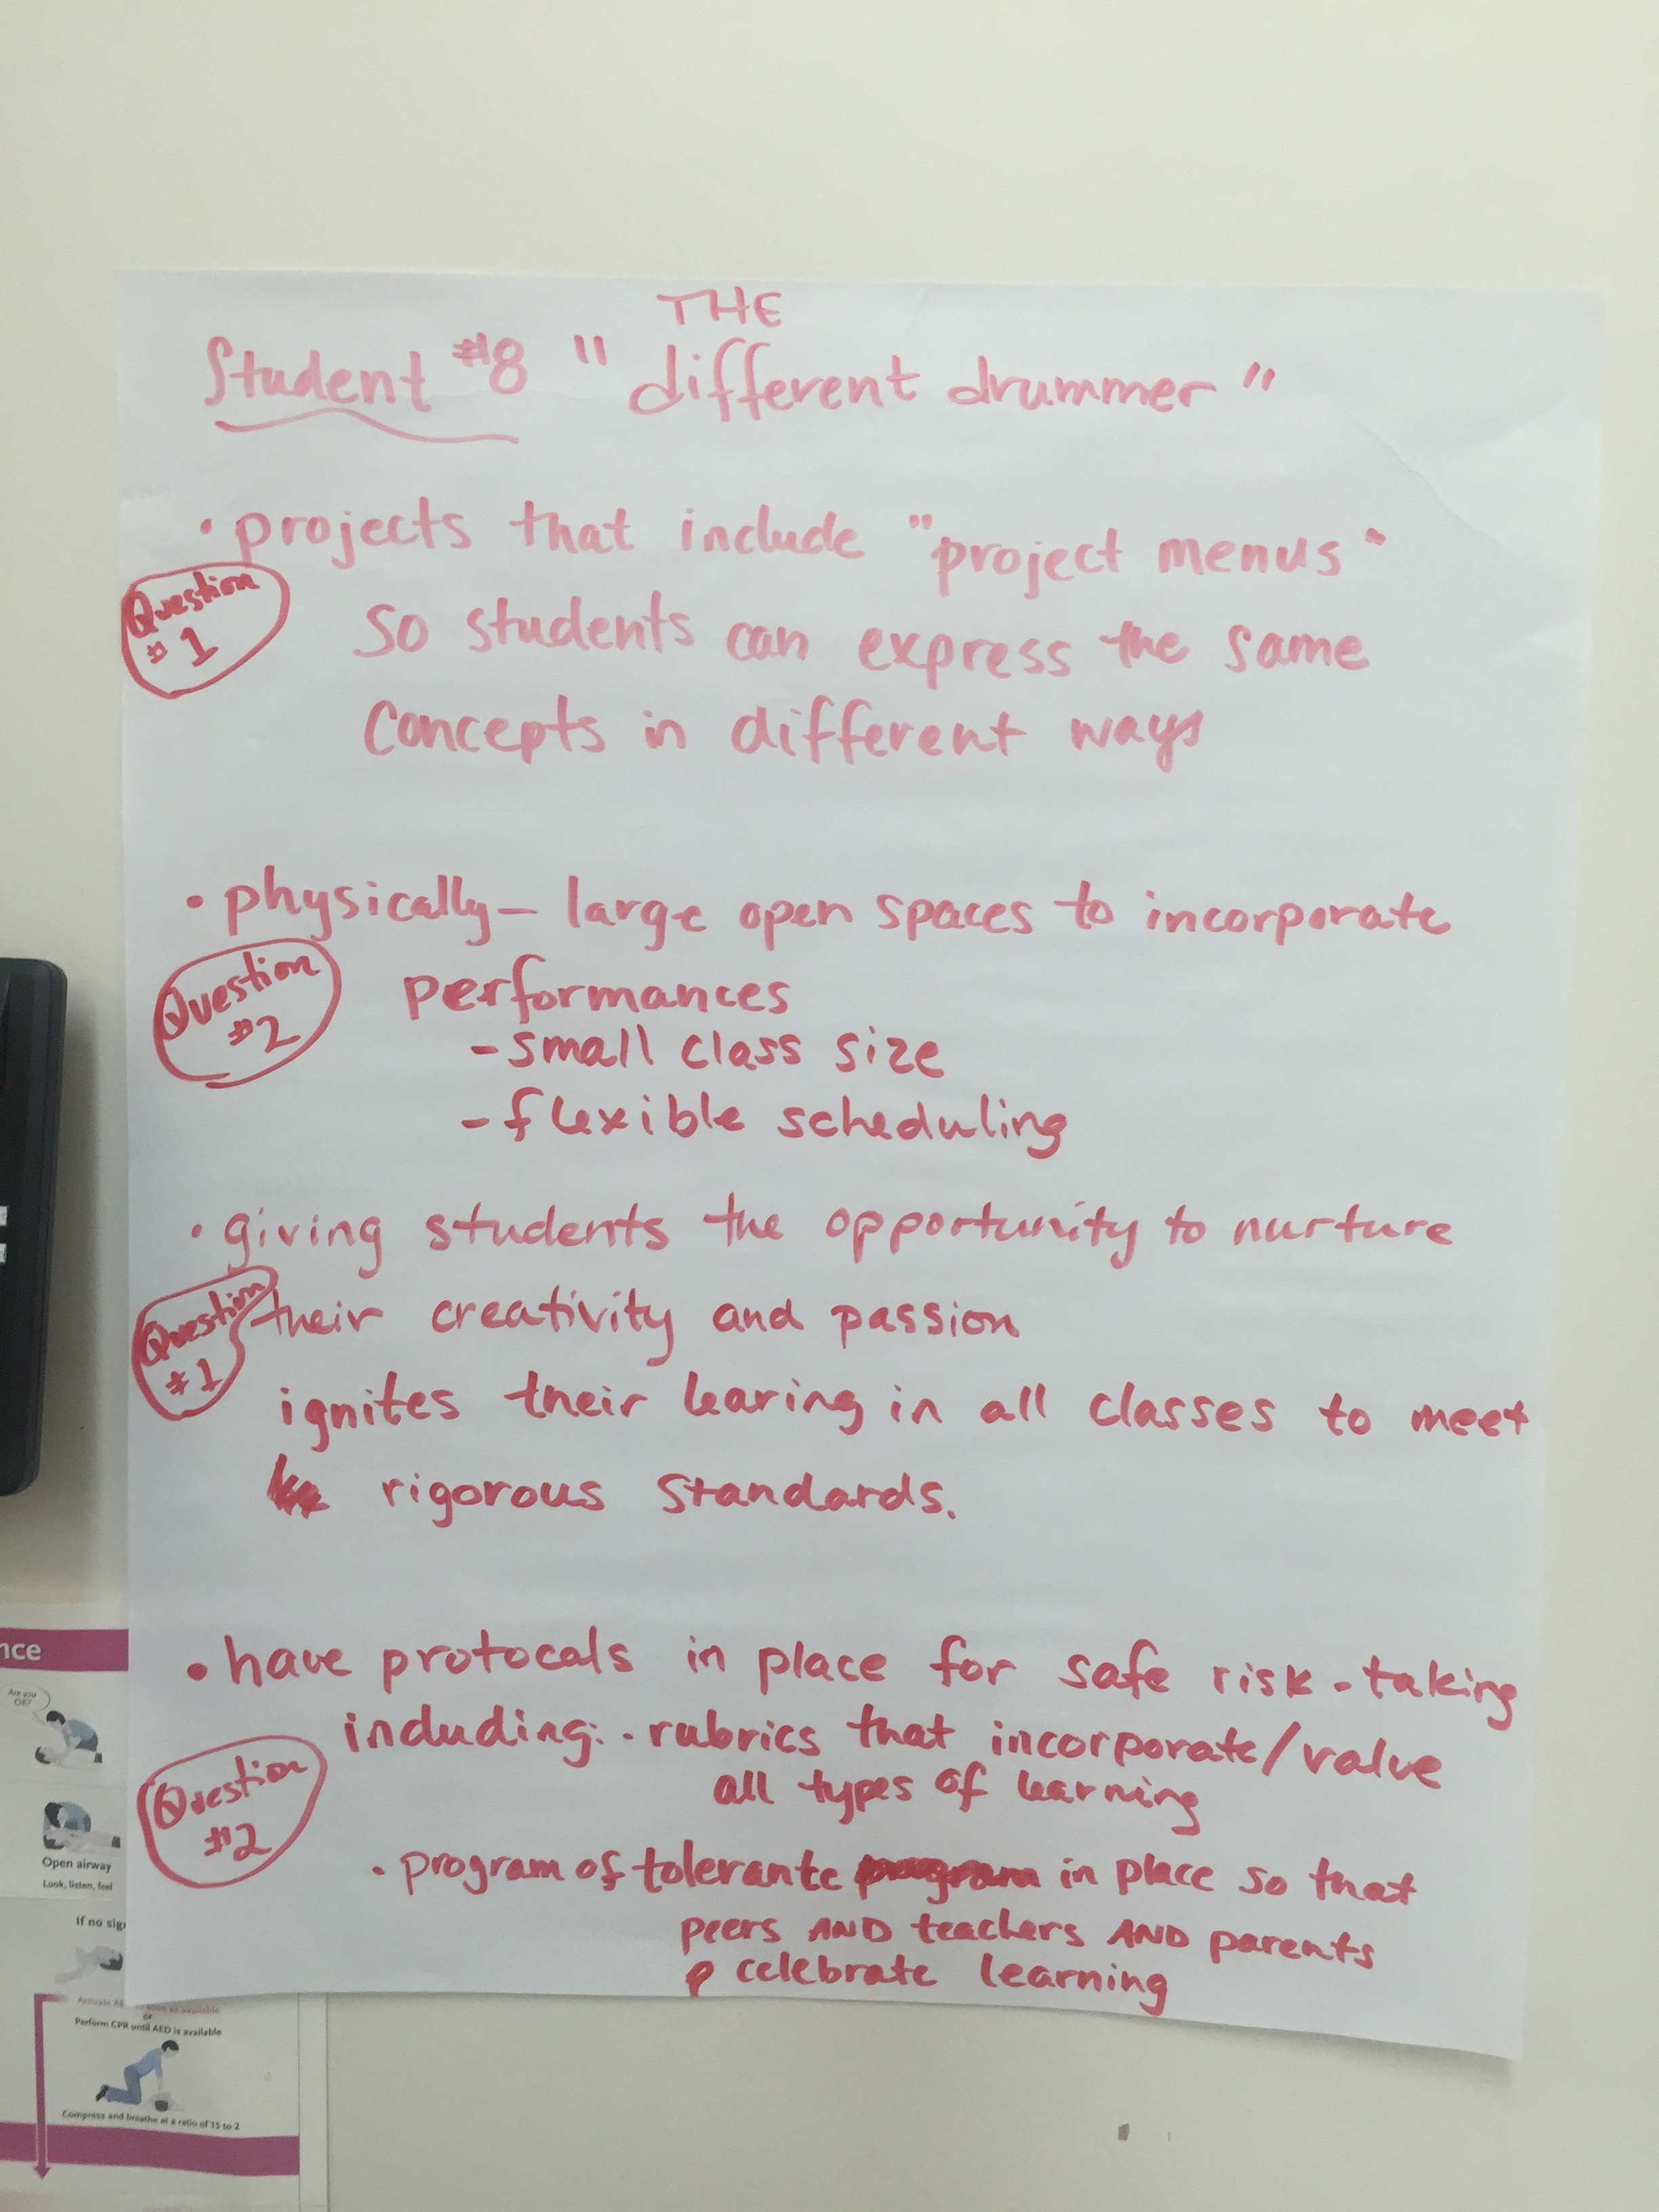 THE
Student #8 " different drummer "
• projects that include "project menus"
Question
#1
So students can express the same
Concepts in different ways
• physically – large open spaces to incorporate
Question
#2
performances
- small class size
- flexible scheduling
• giving students the opportunity to nurture
Question
#1
their creativity and passion
ignites their learing in all classes to meet
rigorous standards.
• have protocals in place for safe risk-taking
including: • rubrics that incorporate/value
all types of learning
Question
#2
• program of tolerante program in place so that
peers AND teachers AND parents
celebrate learning
nce
Are you OK?
Open airway
Look, listen, feel
If no sig
Activate AE soon as available
or
Perform CPR until AED is available
Compress and breathe at a ratio of 15 to 2